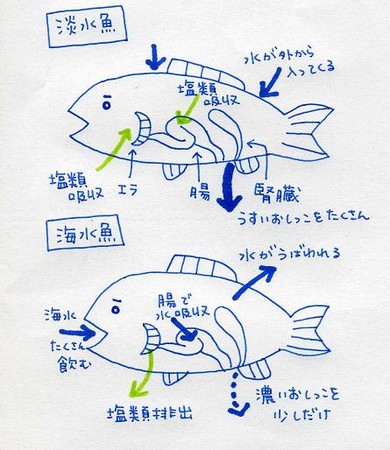 淡水魚
水が外から
入ってくる
塩類
吸収
塩類
吸収
エラ
腸
腎臓
うすいおしっこをたくさん
海水魚
水がうばわれる
海水
たくさん
飲む
腸で
水吸収
塩類排出
濃いおしっこを
少しだけ